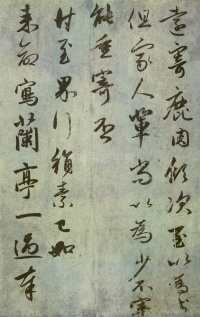 遠寄鹿肉領次至以為
但家人輩尚以為少不審
能重寄否
付至界行絹素已如
来命寫蘭亭一過奉